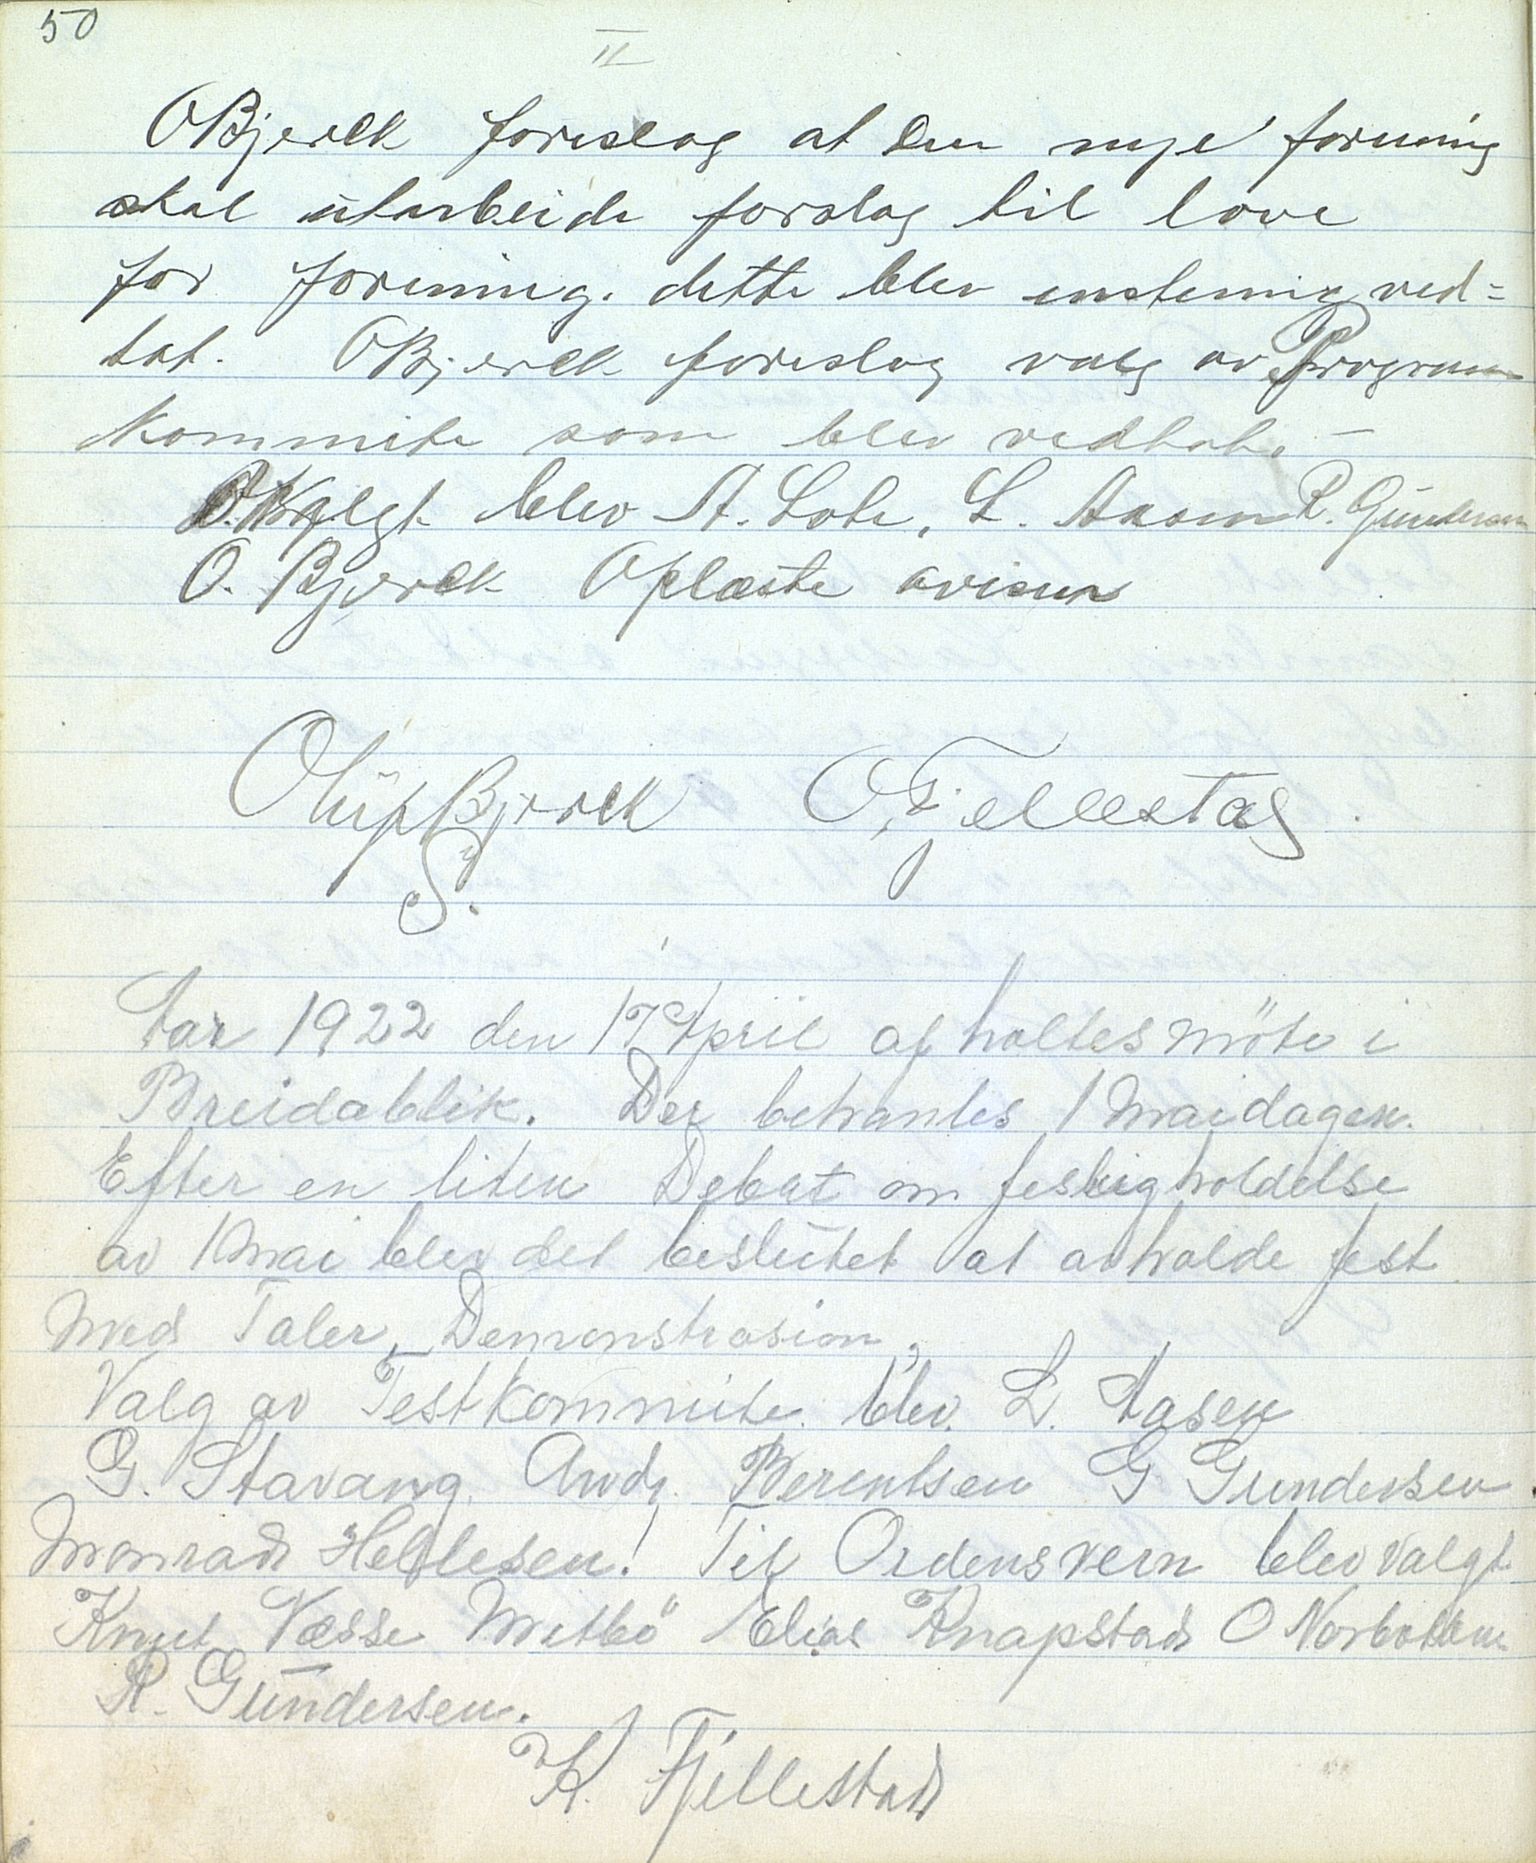 50
II
O Bjerck foreslog at den nye forening
skal utarbeide forslag til love
for forening. dette blev enstemig ved=
tat. O Bjerck foreslog valg av Program
kommite som blev vedtat. —
Valgt blev A. Lote, L. Aasen R. Gundersen
O. Bjerck Oplæste avisen
Oluf Bjerck O, Fjellestad
S.
Aar 1922 den 17 April afholtes möte i
Breidablik. Der behantles 1 Maidagen.
Efter en liten Debat om festligholdelse
av 1 Mai blev det beslutet at avholde fest
Med Taler, Demonstrasion,
Valg av Festkommite blev. L. Aasen
G. Stavang. Andr. Berentsen G Gundersen
Monrad Hellesen! Til Ordensvern blev valgt
Knut Næsse Metbö Elias Knapstad O Norbotten
R. Gundersen.
K. Fjellestad